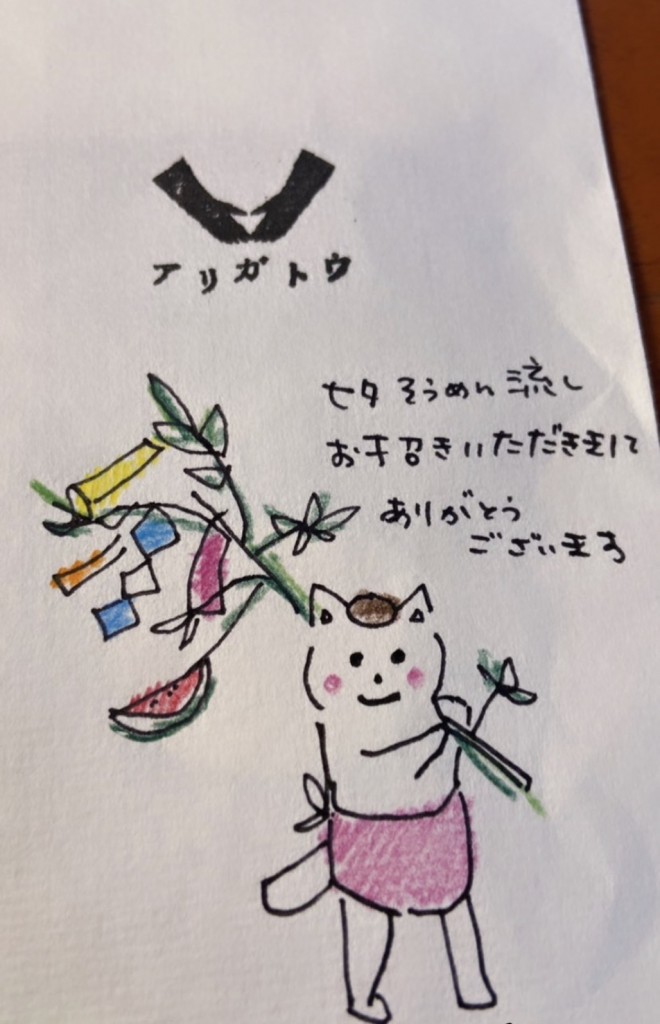 アリガトウ
七夕そうめん流し
お招きいただきまして
ありがとう
ございます